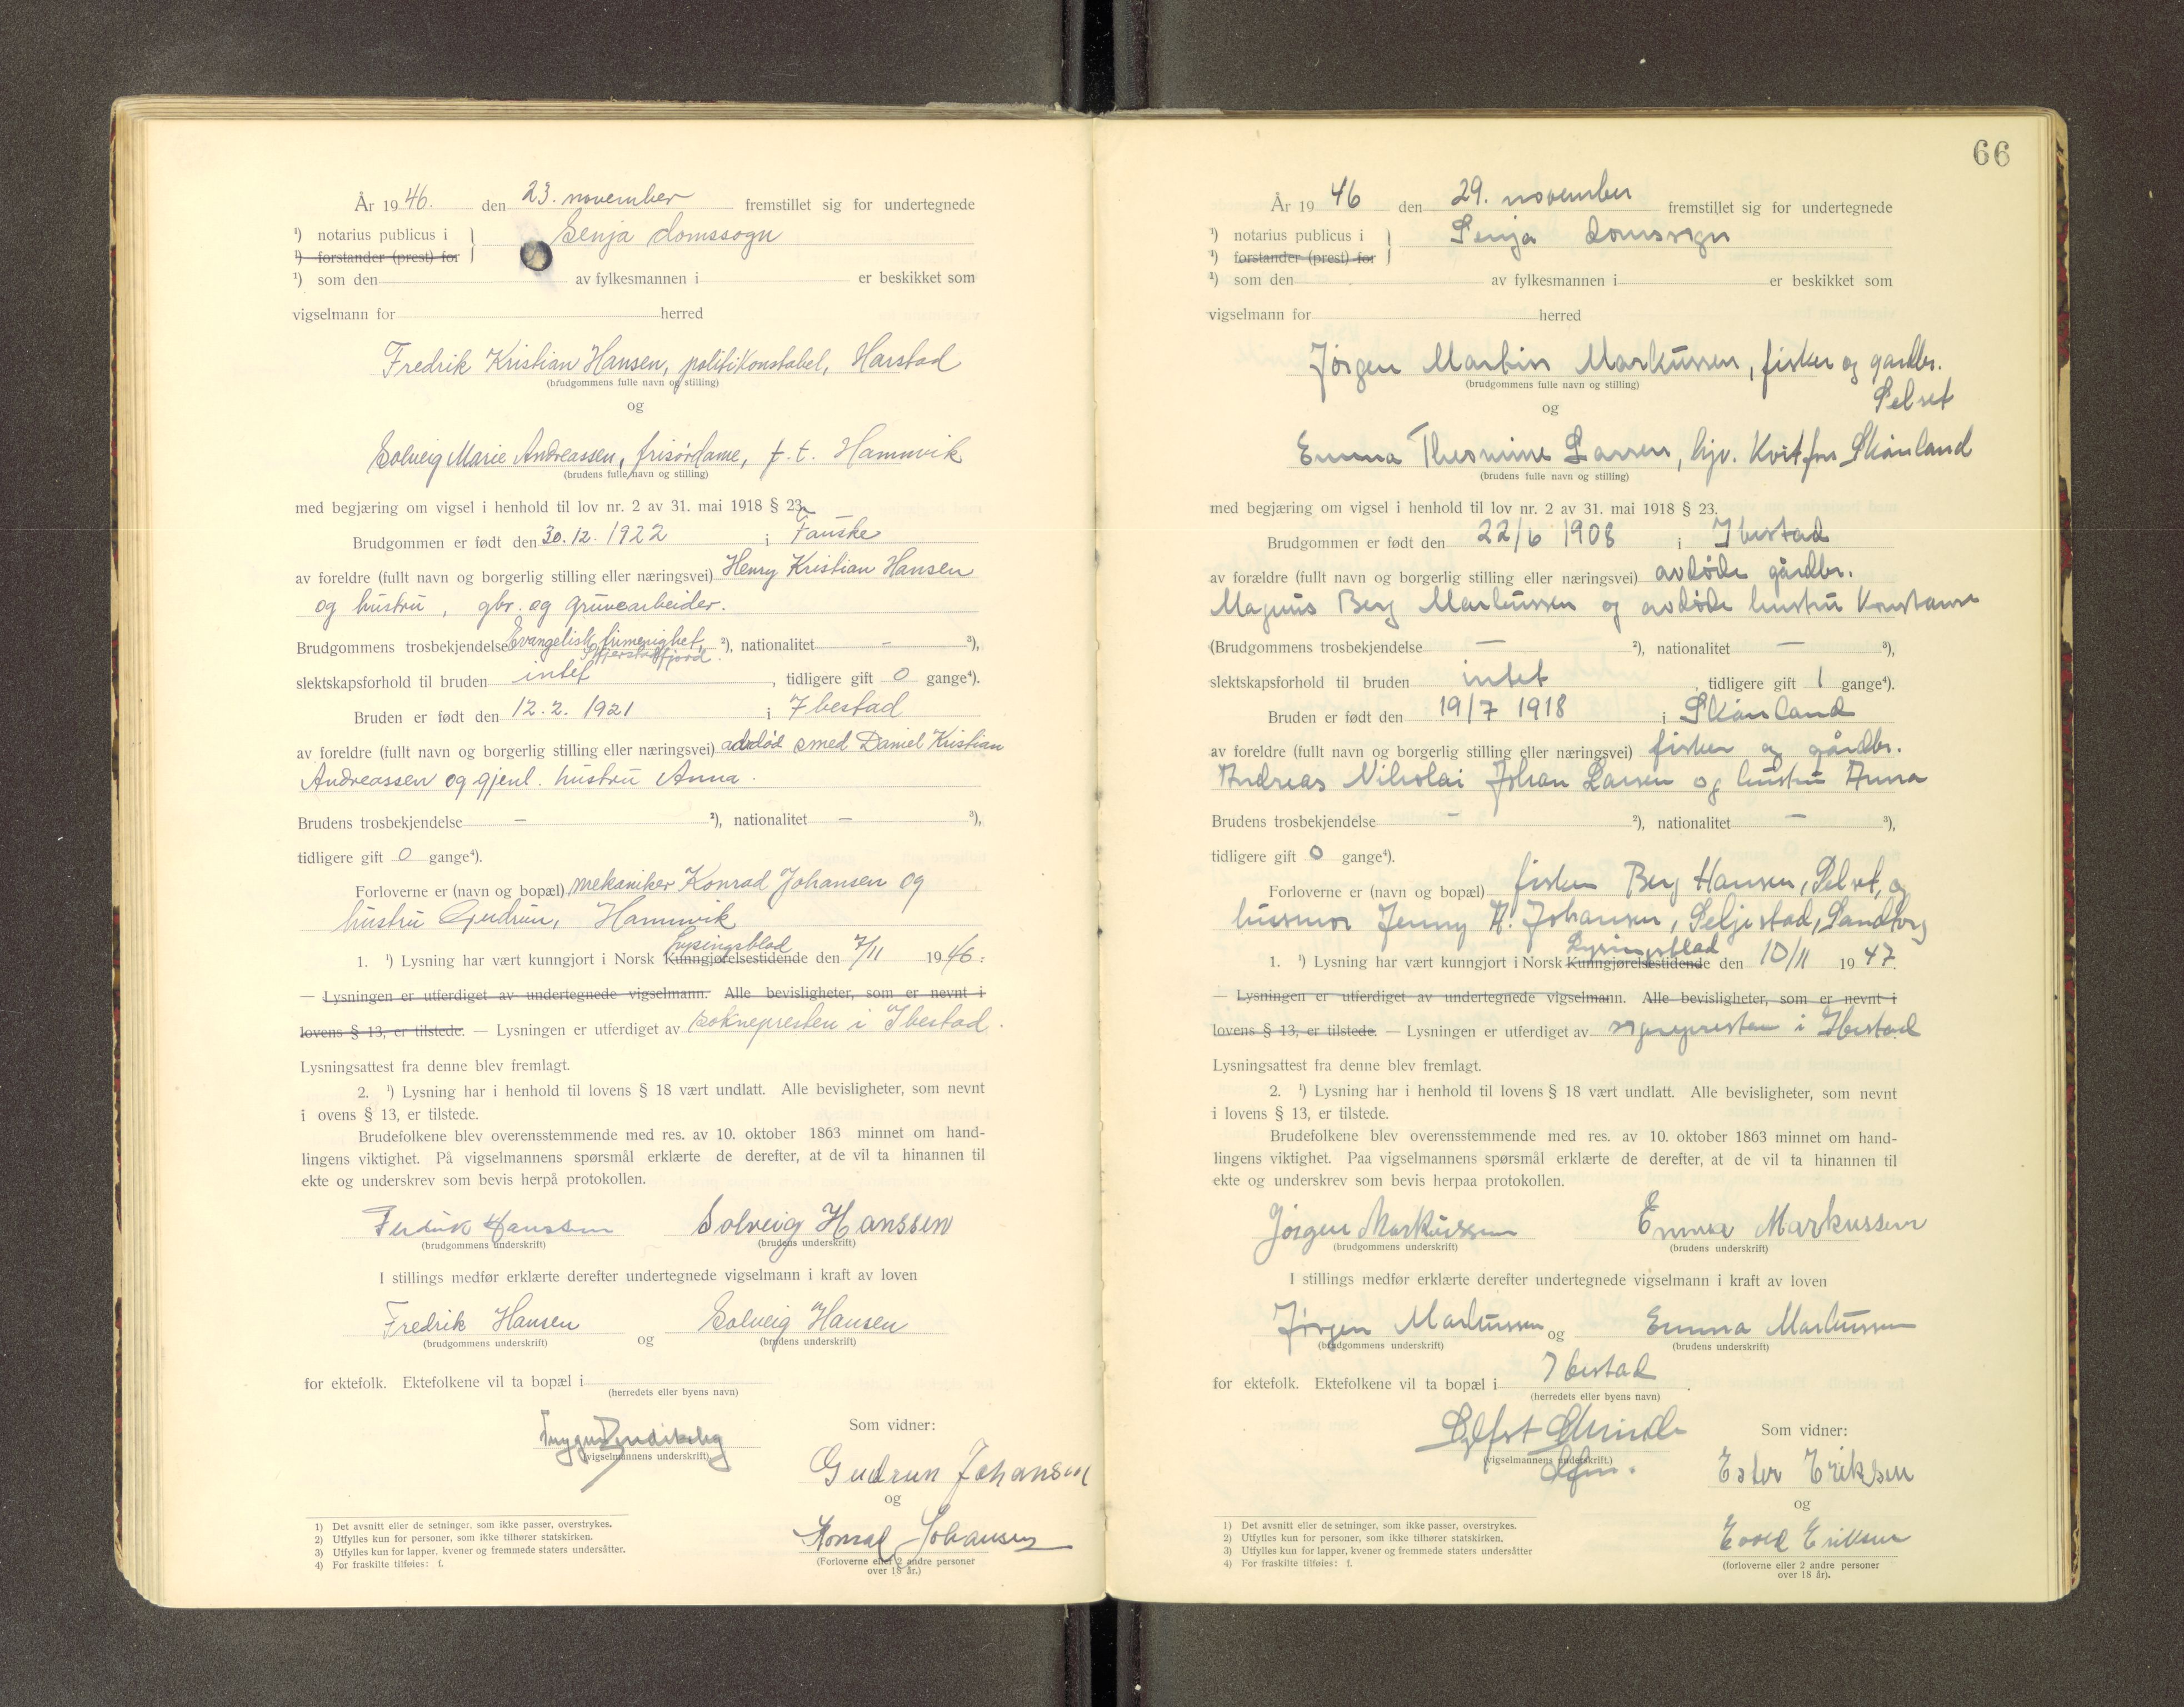 År 1946. den 23. november fremstillet sig for undertegnede
¹) notarius publicus i } Senja domssogn
¹) forstander (prest) for
¹) som den av fylkesmannen i er beskikket som
vigselmann for herred
Fredrik Kristian Hansen, politikonstabel, Harstad
(brudgommens fulle navn og stilling)
og
Solveig Marie Andreassen, frisørdame, f. t. Hamnvik
(brudens fulle navn og stilling)
med begjæring om vigsel i henhold til lov nr. 2 av 31. mai 1918 § 23.
Brudgommen er født den 30.12. 1922 i Fauske
av foreldre (fullt navn og borgerlig stilling eller næringsvei) Henry Kristian Hansen
og hustru, gbr. og gruvearbeider.
Brudgommens trosbekjendelse Evangelisk frimenighet, ²), nationalitet — ³),
Skjerstadfjord.
slektskapsforhold til bruden intet, tidligere gift 0 gange⁴).
Bruden er født den 12.2. 1921 i Ibestad
av foreldre (fullt navn og borgerlig stilling eller næringsvei) avdød smed Daniel Kristian
Andreassen og gjenl. hustru Anna.
Brudens trosbekjendelse — ²), nationalitet — ³),
tidligere gift 0 gange⁴).
Forloverne er (navn og bopæl) mekaniker Konrad Johansen og
hustru Gudrun, Hamnvik
Lysingsblad
1. ¹) Lysning har vært kunngjort i Norsk Kunngjørelsestidende den 7/11 1946.
— Lysningen er utferdiget av undertegnede vigselmann. Alle bevisligheter, som er nevnt i
lovens § 13, er tilstede. — Lysningen er utferdiget av soknepresten i Ibestad.
Lysningsattest fra denne blev fremlagt.
2. ¹) Lysning har i henhold til lovens § 18 vært undlatt. Alle bevisligheter, som nevnt
i ovens § 13, er tilstede.
Brudefolkene blev overensstemmende med res. av 10. oktober 1863 minnet om hand-
lingens viktighet. På vigselmannens spørsmål erklærte de derefter, at de vil ta hinannen til
ekte og underskrev som bevis herpå protokollen.
Fredrik Hanssen Solveig Hanssen
(brudgommens underskrift) (brudens underskrift)
I stillings medfør erklærte derefter undertegnede vigselmann i kraft av loven
Fredrik Hansen og Solveig Hansen
(brudgommens underskrift) (brudens underskrift)
for ektefolk. Ektefolkene vil ta bopæl i
(herredets eller byens navn)
(vigselmannens underskrift)
Som vidner:
Gudrun Johansen
og
Konrad Johansen
(Forloverne eller 2 andre personer
over 18 år.)
1) Det avsnitt eller de setninger, som ikke passer, overstrykes.
2) Utfylles kun for personer, som ikke tilhører statskirken.
3) Utfylles kun for lapper, kvener og fremmede staters undersåtter.
4) For fraskilte tilføies: f.
66
År 1946 den 29. november fremstillet sig for undertegnede
¹) notarius publicus i } Senja domssogn
¹) forstander (prest) for
¹) som den av fylkesmannen i er beskikket som
vigselmann for herred
Jørgen Martin Markussen, fisker og gardbr.
(brudgommens fulle navn og stilling)
Selset
og
Emma Thesmine Larsen, hjv. Kvitfors Skånland
(brudens fulle navn og stilling)
med begjæring om vigsel i henhold til lov nr. 2 av 31. mai 1918 § 23.
Brudgommen er født den 22/6 1908 i Ibestad
av forældre (fullt navn og borgerlig stilling eller næringsvei) avdøde gårdbr.
Magnus Berg Markussen og avdøde hustru Konstanse
(Brudgommens trosbekjendelse — ²), nationalitet — ³),
slektskapsforhold til bruden intet, tidligere gift 1 gange⁴).
Bruden er født den 19/7 1918 i Skånland
av foreldre (fullt navn og borgerlig stilling eller næringsvei) fisker og gårdbr.
Andreas Nikolai Johan Larsen og hustru Anna
Brudens trosbekjendelse — ²), nationalitet — ³),
tidligere gift 0 gange⁴).
Forloverne er (navn og bopæl) fisker Berg Hansen, Selset, og
husmor Jenny H. Johansen, Seljestad, Sandtorg
Lysingsblad
1. ¹) Lysning har vært kunngjort i Norsk Kunngjørelsestidende den 10/11 1947.
— Lysningen er utferdiget av undertegnede vigselmann. Alle bevisligheter, som er nevnt i
lovens § 13, er tilstede. — Lysningen er utferdiget av sognepresten i Ibestad
Lysningsattest fra denne blev fremlagt.
2. ¹) Lysning har i henhold til lovens § 18 vært undlatt. Alle bevisligheter, som nevnt
i lovens § 13, er tilstede.
Brudefolkene blev overensstemmende med res. av 10. oktober 1863 minnet om hand-
lingens viktighet. Paa vigselmannens spørsmål erklærte de derefter, at de vil ta hinannen til
ekte og underskrev som bevis herpaa protokollen.
Jørgen Markussen Emma Markussen
(brudgommens underskrift) (brudens underskrift)
I stillings medfør erklærte derefter undertegnede vigselmann i kraft av loven
Jørgen Markussen og Emma Markussen
(brudgommens underskrift) (brudens underskrift)
for ektefolk. Ektefolkene vil ta bopæl i Ibestad
(herredets eller byens navn)
(vigselmannens underskrift.)
Som vidner:
Ester Eriksen
og
Eriksen
(forloverne eller 2 andre personer
over 18 år).
1) Det avsnitt eller de setninger, som ikke passer, overstrykes.
2) Utfylles kun for personer, som ikke tilhører statskirken.
3) Utfylles kun for lapper, kvener og fremmede staters undersåtter
4) For fraskilte tilføies: f.